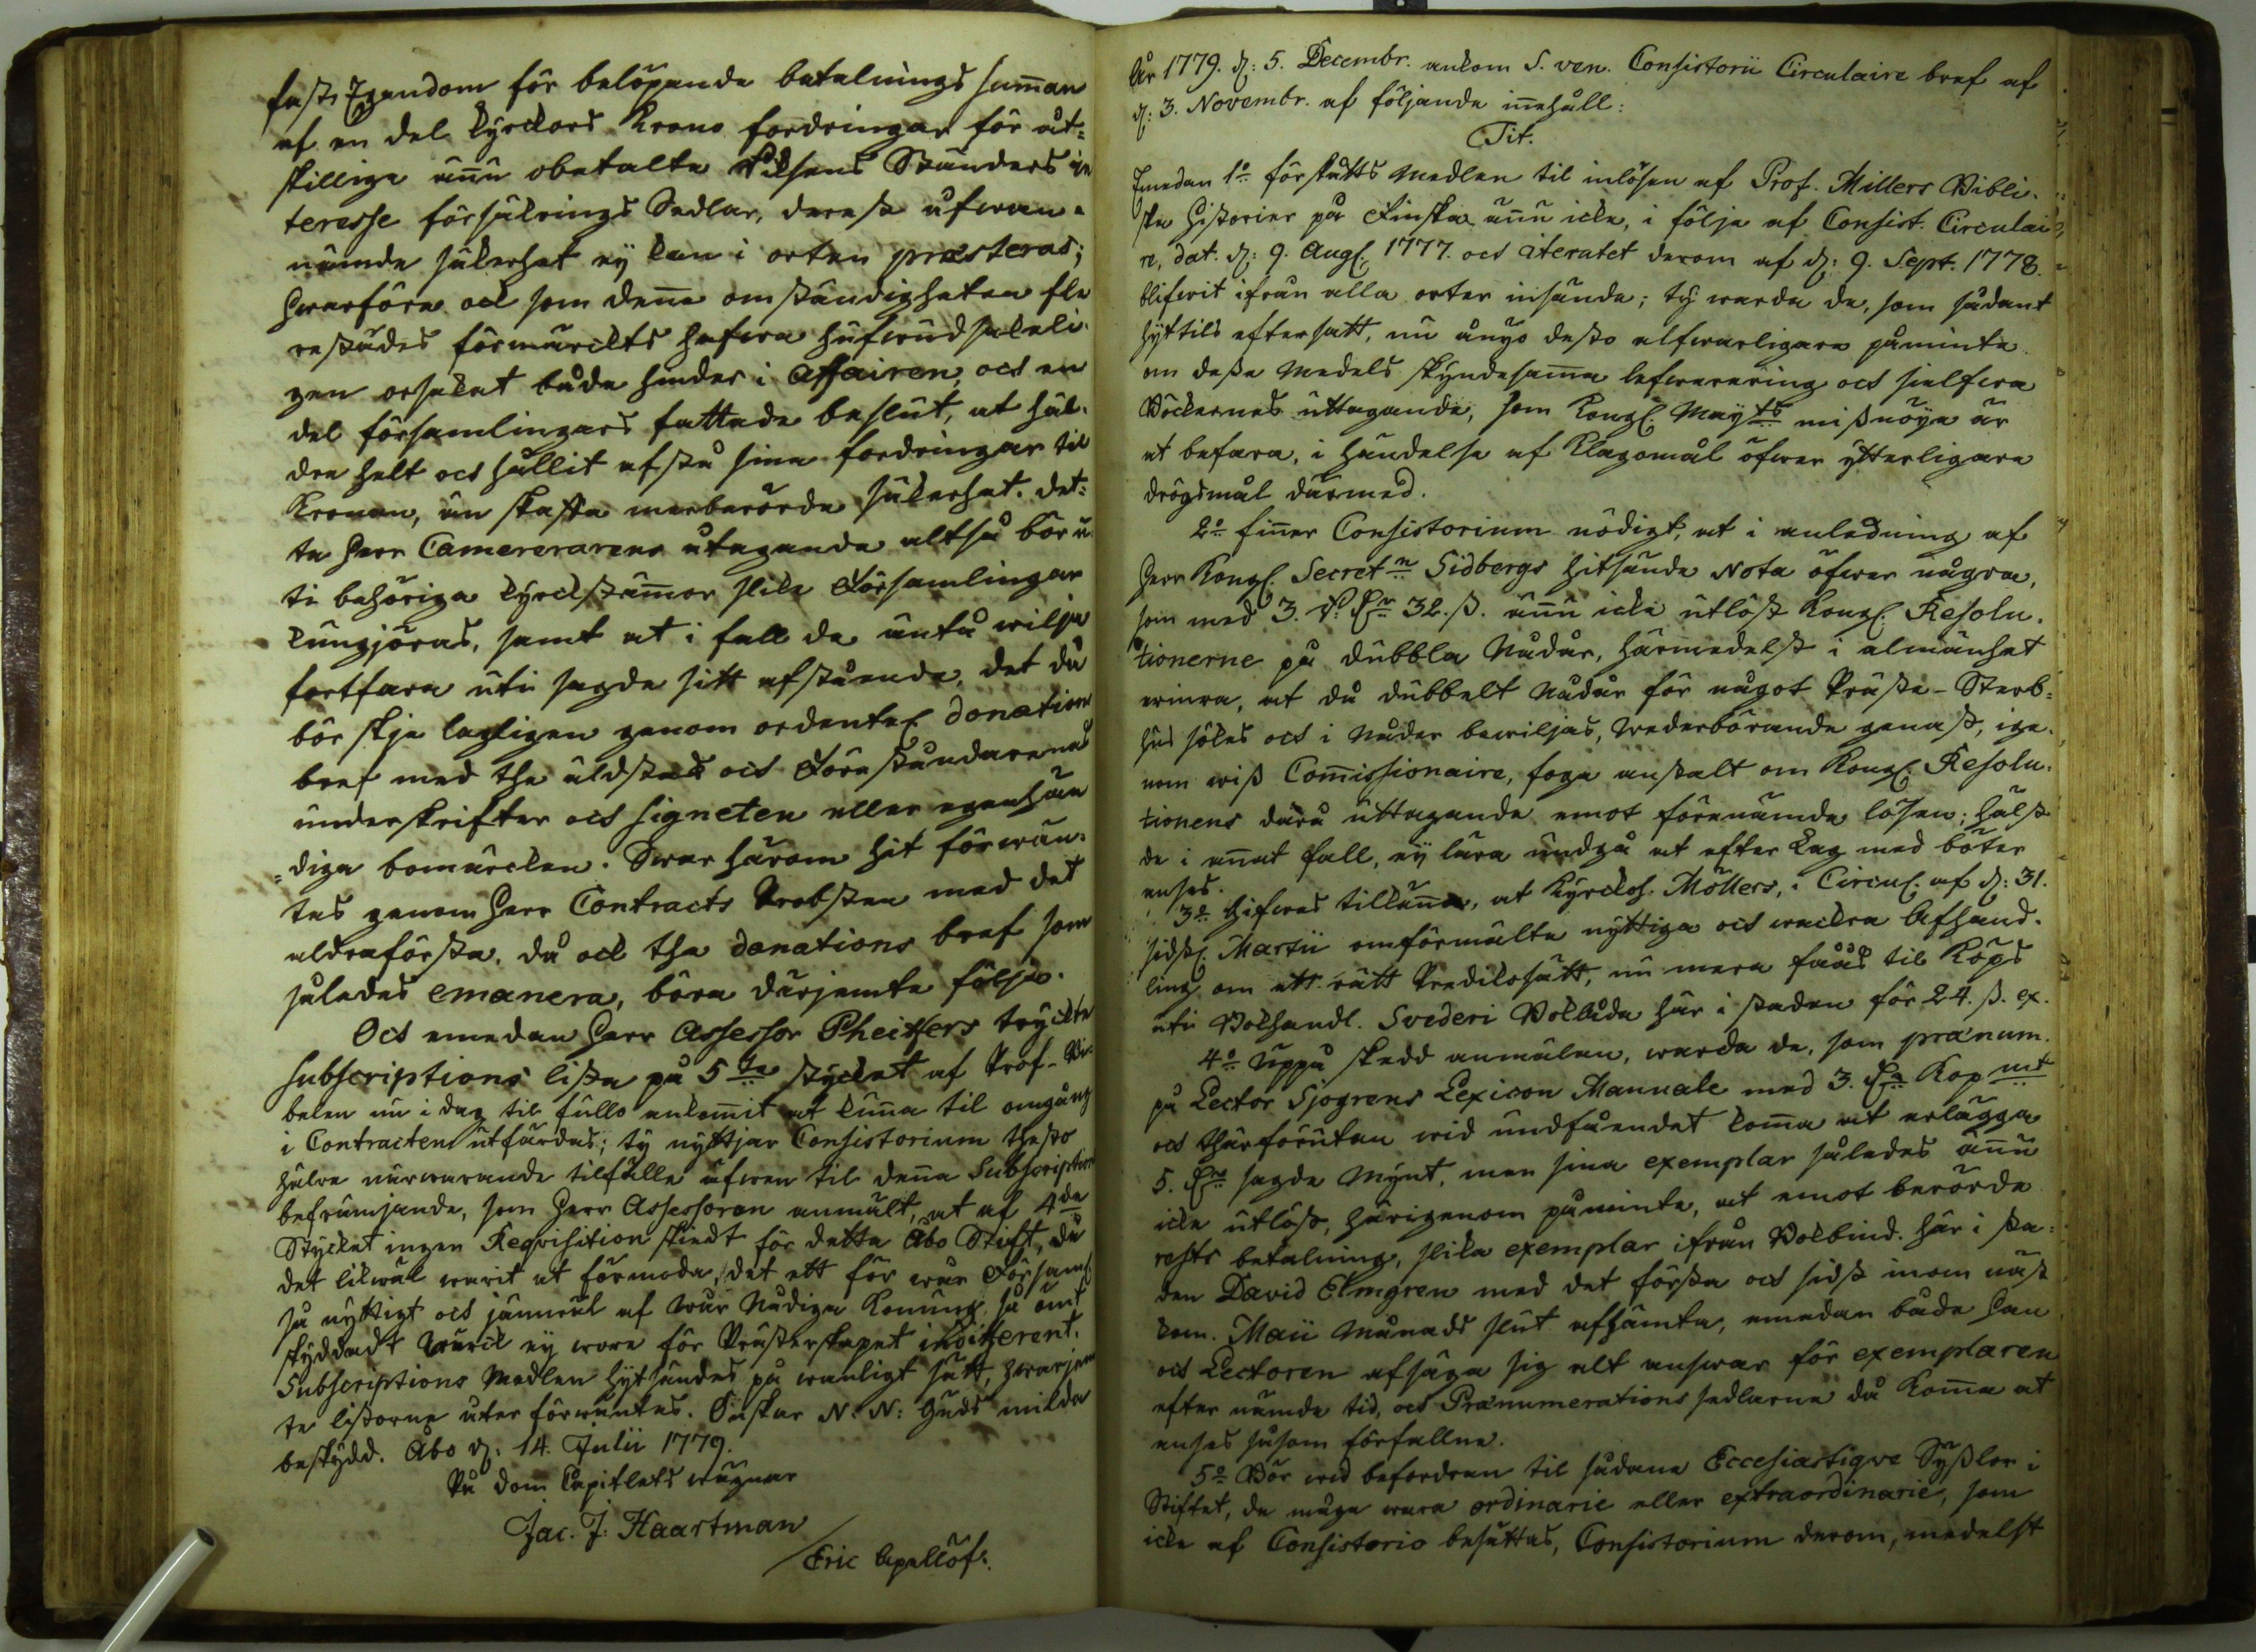 fast Egendom för belöpande betalnings sum̄an
af en del kyrckors Krono fordringar för åt-
skillige än̄u obetalta Riksens Ständers in
teresse försäkrings Sedlar, derest ofwan-
nämde säkerhet ej kan i orten præsteras;
hwarföre ock som den̄e omständigheten fle
restädes förmärckts hafwa hufwudsakeli-
gen orsakat både hinder i affairen, och en
del församlingars fattade beslut, at häl-
dre helt och hållit afstå sina fordringar til
Kronan, än skaffa merberörde säkerhet. Det-
ta Herr Camererarens utagande altså bör u-
ti behöriga kyrckstäm̄or slike Församlingar
kungjöras, samt at i fall de ändå wilja
fortfara uti sagde sitt afstående, det då
bör skje lagligen genom ordentel. donations
bref med the äldstas och Föreståndarenas
underskrifter och signeten eller egenhän
diga bomärcken. Swar härom hit förwän-
tas genom Herr Contracts Probsten med det
aldraförsta, då ock the donations bref som
således emanera, böra därjemte följa.
Och emedan Herr Assessor Pheiffers tryckte
subscriptions lista på 5te stycket af Prof-Bi-
belen nu i dag til fullo ankom̄it at kun̄a til omgång
i Contracten utfärdas; ty nyttjar Consistorium thesto
hälre närwarande tilfälle äfwen til den̄a Subscription
befrämjande, som Herr Assessoren anmält, at af 4de
Stycket ingen Reqvisition skedt för detta Åbo Stift, då
det likwäl warit at förmoda, det ett för wår Församl.
så nyttigt och jämwäl af wår Nådiga Konung så ömt
skyddadt wärck ej wore för Prästerskapet indifferent.
Subscriptions Medlen hytsändes på wanligt sätt, hwarjem
te listorne åter förwäntas. Önskar N: N: Guds milda
beskydd. Åbo d: 14. Julii 1779.
På Dom Capitlets wägnar
Jac. J: Haartman
Eric Apellöf.
År 1779. d: 5. Decembr. ankom S. ven. Consistorii Circulaire bref af
d: 3. Novembr. af följande in̄ehåll:
Tit.
Emedan 1o förskotts Medlen til inlösen af Prof. Millers Bibli-
ska Historier på Finska än̄u icke, i följe af Consist. Circulai
re, dat. d: 9. Aug. 1777. och iteratet derom af d: 9. Sept. 1778.
blifwit ifrån alla orter insände; ty warda de, som sådant
hyttils eftersatt, nu ånyo desto alfwarligare påminte
om desse Medels skyndesam̄a lefwerering och sielfwa
Böckernes uttagande, som Kongl. Maÿts misnöje är
at befara, i händelse af klagomål öfwer ytterligare
drögsmål därmed.
2o fin̄er Consistorium nödigt, at i anledning af
Herr Kongl. Secretn Sidbergs hitsände Nota öfwer några,
som med 3. Rr 32. ß. än̄u icke utlöst Kongl. Resolu-
tionerne på dubbla Nådår, härmedelst i almänhet
erinra, at då dubbelt Nådår för något Präste-Sterb-
hus sökes och i Nåder bewiljas, wederbörande genast, ige-
nom wiss Com̄issionaire, foga anstalt om Kongl. Resolu-
tionens därå uttagande emot förenämde lösen; hälst
de i an̄at fall, ej lära undgå at efter Lag med böter
anses.
3o Gifwes tillkän̄a, at Kyrckoh. Möllers, i Circul. af d: 31.
sidstl. Martii omförmälte nyttiga och wackra Afhand-
ling om ett rätt Predikosätt, nu mera fåås til Köps
uti Bokhandl. Svederi Boklåda här i staden för 24. ß. ex.
4o Uppå skedd anmälan, warda de, som prænum.
på Lector Sjögrens Lexicon Manuale med 3. Dr Kop mt
och thärförutan wid undfåendet kom̄a at erlägga
5. Dr sagde Mynt, men sina exemplar således än̄u
icke utlöst, härigenom påminte, at emot berörde
rests betalning, slika exemplar ifrån Bokbind. här i sta-
den David Elmgren med det första och sidst inom näst
kom. Maii Månads slut afhämta, emedan både han
och Lectoren afsäga sig alt answar för exemplaren
efter nämde tid, och Prænumerations sedlarne då kom̄a at
anses såsom förfallne.
5o Bör wid befordran til sådane Eccesiastiqve Sysslor i
Stiftet, de måge wara ordinarie eller extraordinarie, som
icke af Consistorio besättas, Consistorium derom, medelst